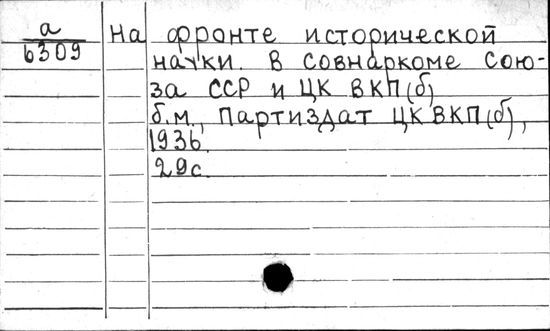 а На фронте исторической
6309 науки. В Совнаркоме Сою-
за ССР и ЦК ВКП(б)
б.м., Партиздат ЦК ВКП(б),
1936.
29с.